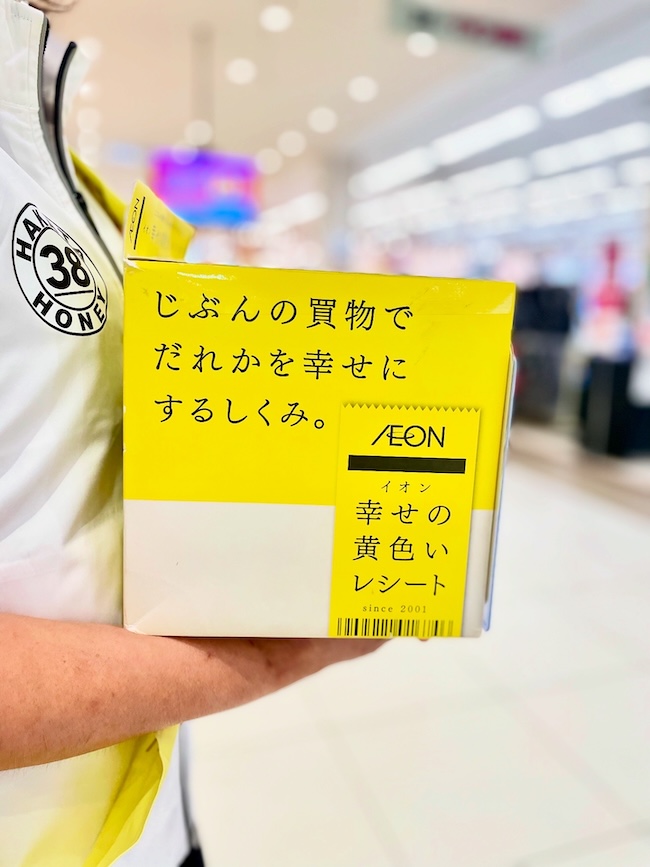 じぶんの買物で
だれかを幸せに
するしくみ。
ÆON
イオン
幸せの
黄色い
レシート
since 2001
ÆON
38
HONEY